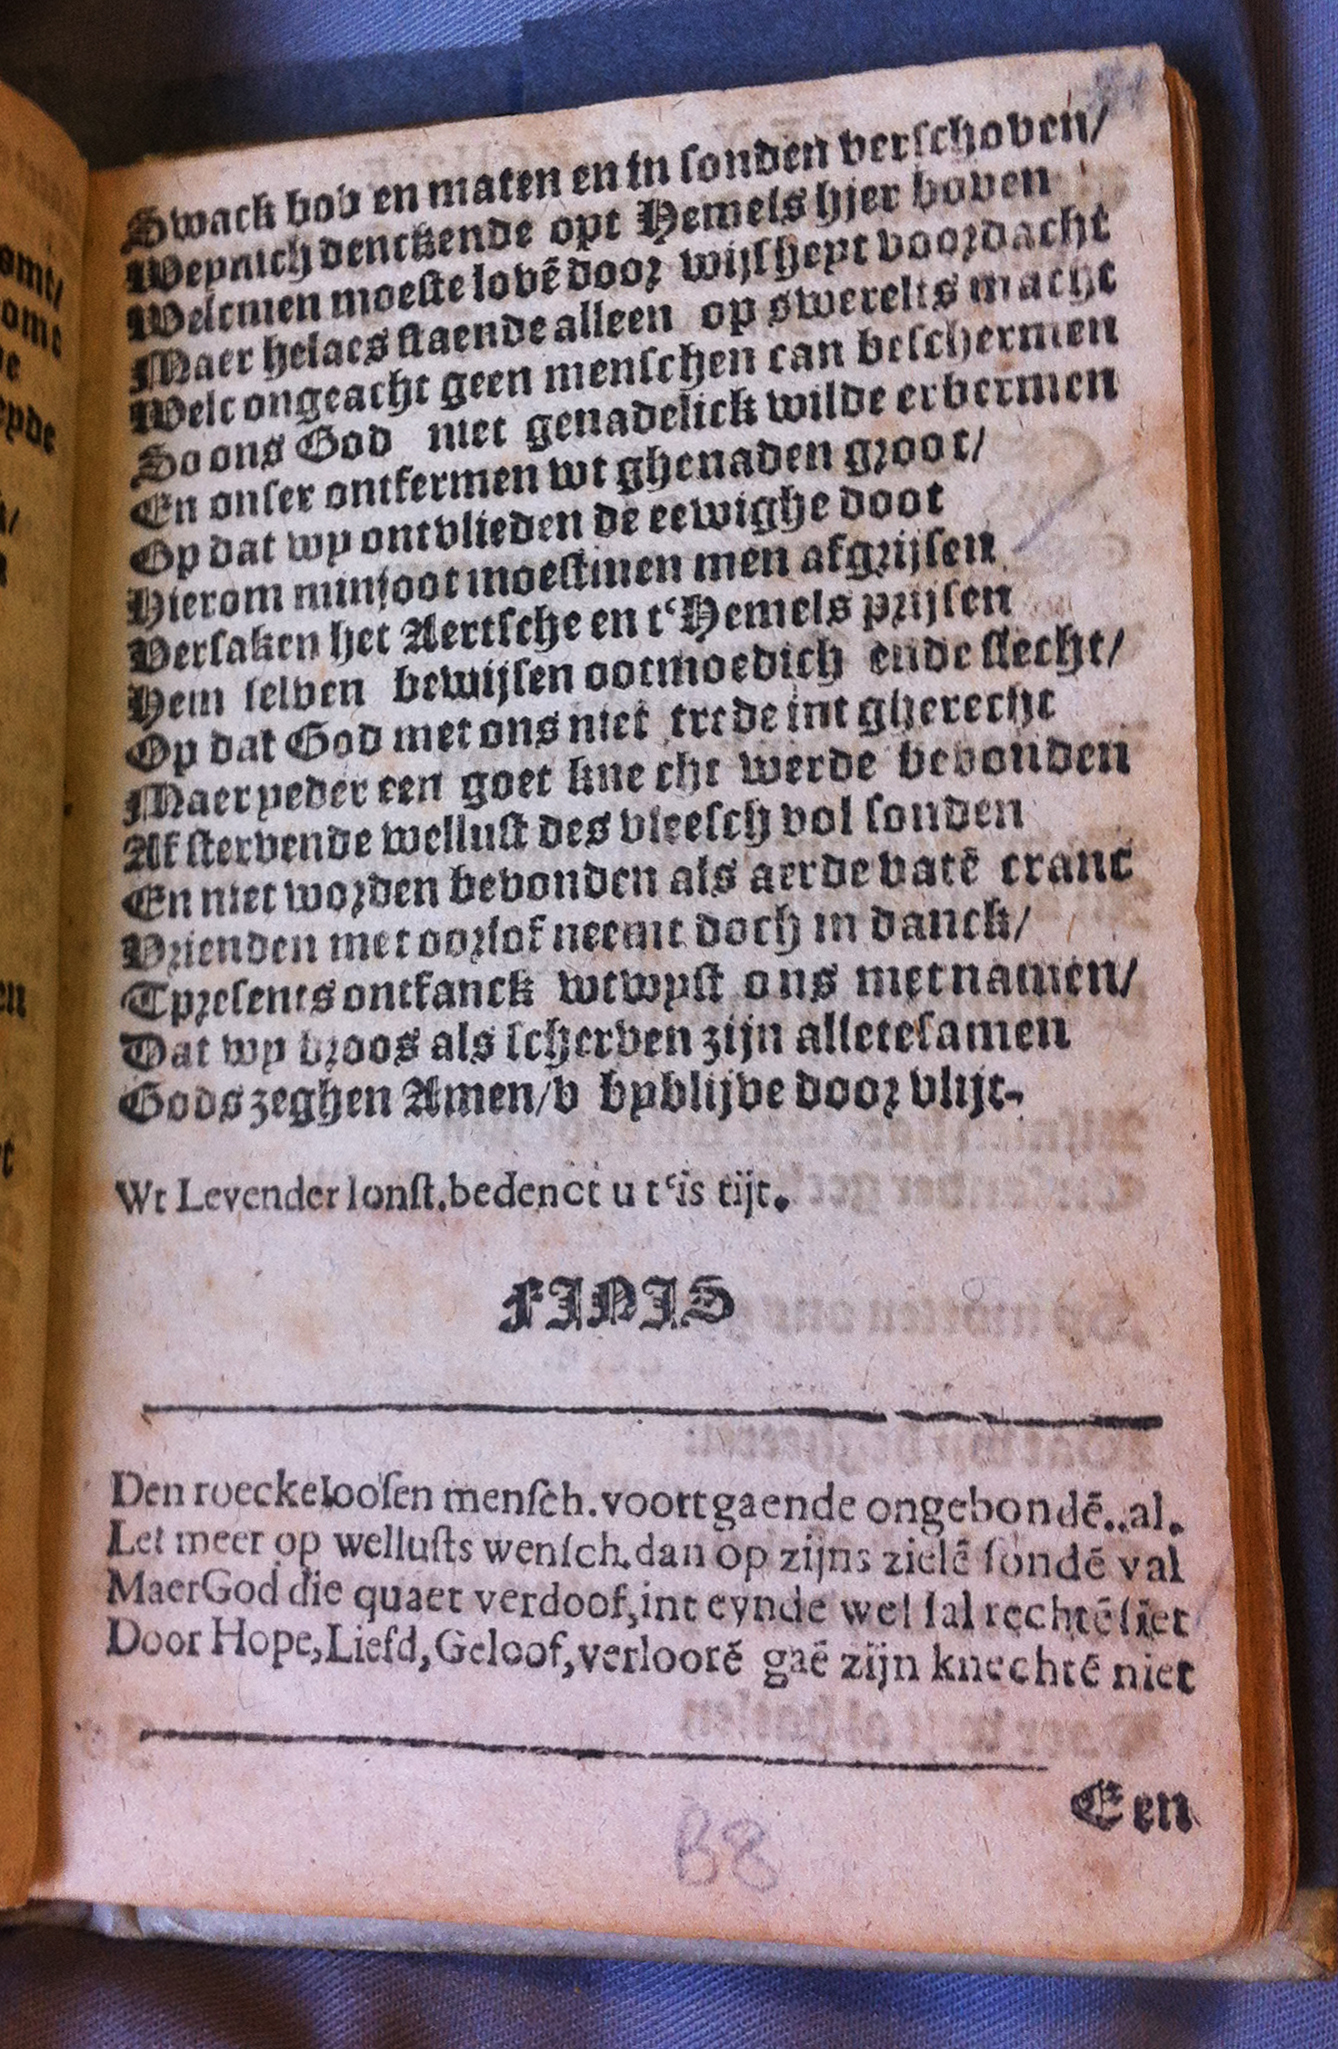 Swack bov en maten en in sonden verschoven/
Weynich denckende opt Hemels hier boven
Welcmen moeste lovē door wijsheyt voordacht
Maer helaes staende alleen op swerelts macht
Welc ongeacht geen menschen can beschermen
So ons God niet genadelick wilde erbermen
En onser ontfermen wt ghenaden groot/
Op dat wy ontvlieden de eewighe doot
Hierom minsoot moestmen men afgrijsen
Versaken het Aertsche en t'Hemels prijsen
Hem selven bewijsen ootmoedich ende slecht/
Op dat God met ons niet trede int gherecht
Maer yeder een goet knecht werde bevonden
Af stervende wellust des vleesch vol sonden
En niet worden bevonden als aerde vatē cranc
Vrienden met oorlof neemt doch in danck/
Tpresents ontfanck wtwyst ons met namen/
Dat wy broos als scherven zijn alletesamen
Gods zeghen Amen/v byblijve door vlijt.
Wt Levender Ionst.bedenct u t'is tijt.
FINIS
Den roeckeloosen mensch.voortgaende ongebondē..al.
Let meer op wellusts wensch.dan op zijns zielē sondē val
Maer God die quaet verdoof,int eynde wel sal rechtē siet
Door Hope,Liefd,Geloof,verloorē gaē zijn knechtē niet
Een
B8